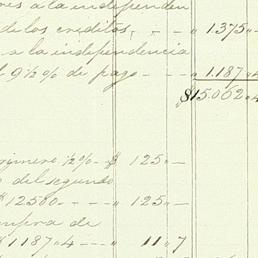 res a la independen
de los creditos, - - " 1.375 " -
s a la independencia
l 9½% de pago - - - " 1.187 " 4
$15.062 " 4
rimero ½% - $ 125 " -
o del segundo
$ 12500 - - - " 125 " -
mpra de
$ 1187 " 4 - - " 11 " 7